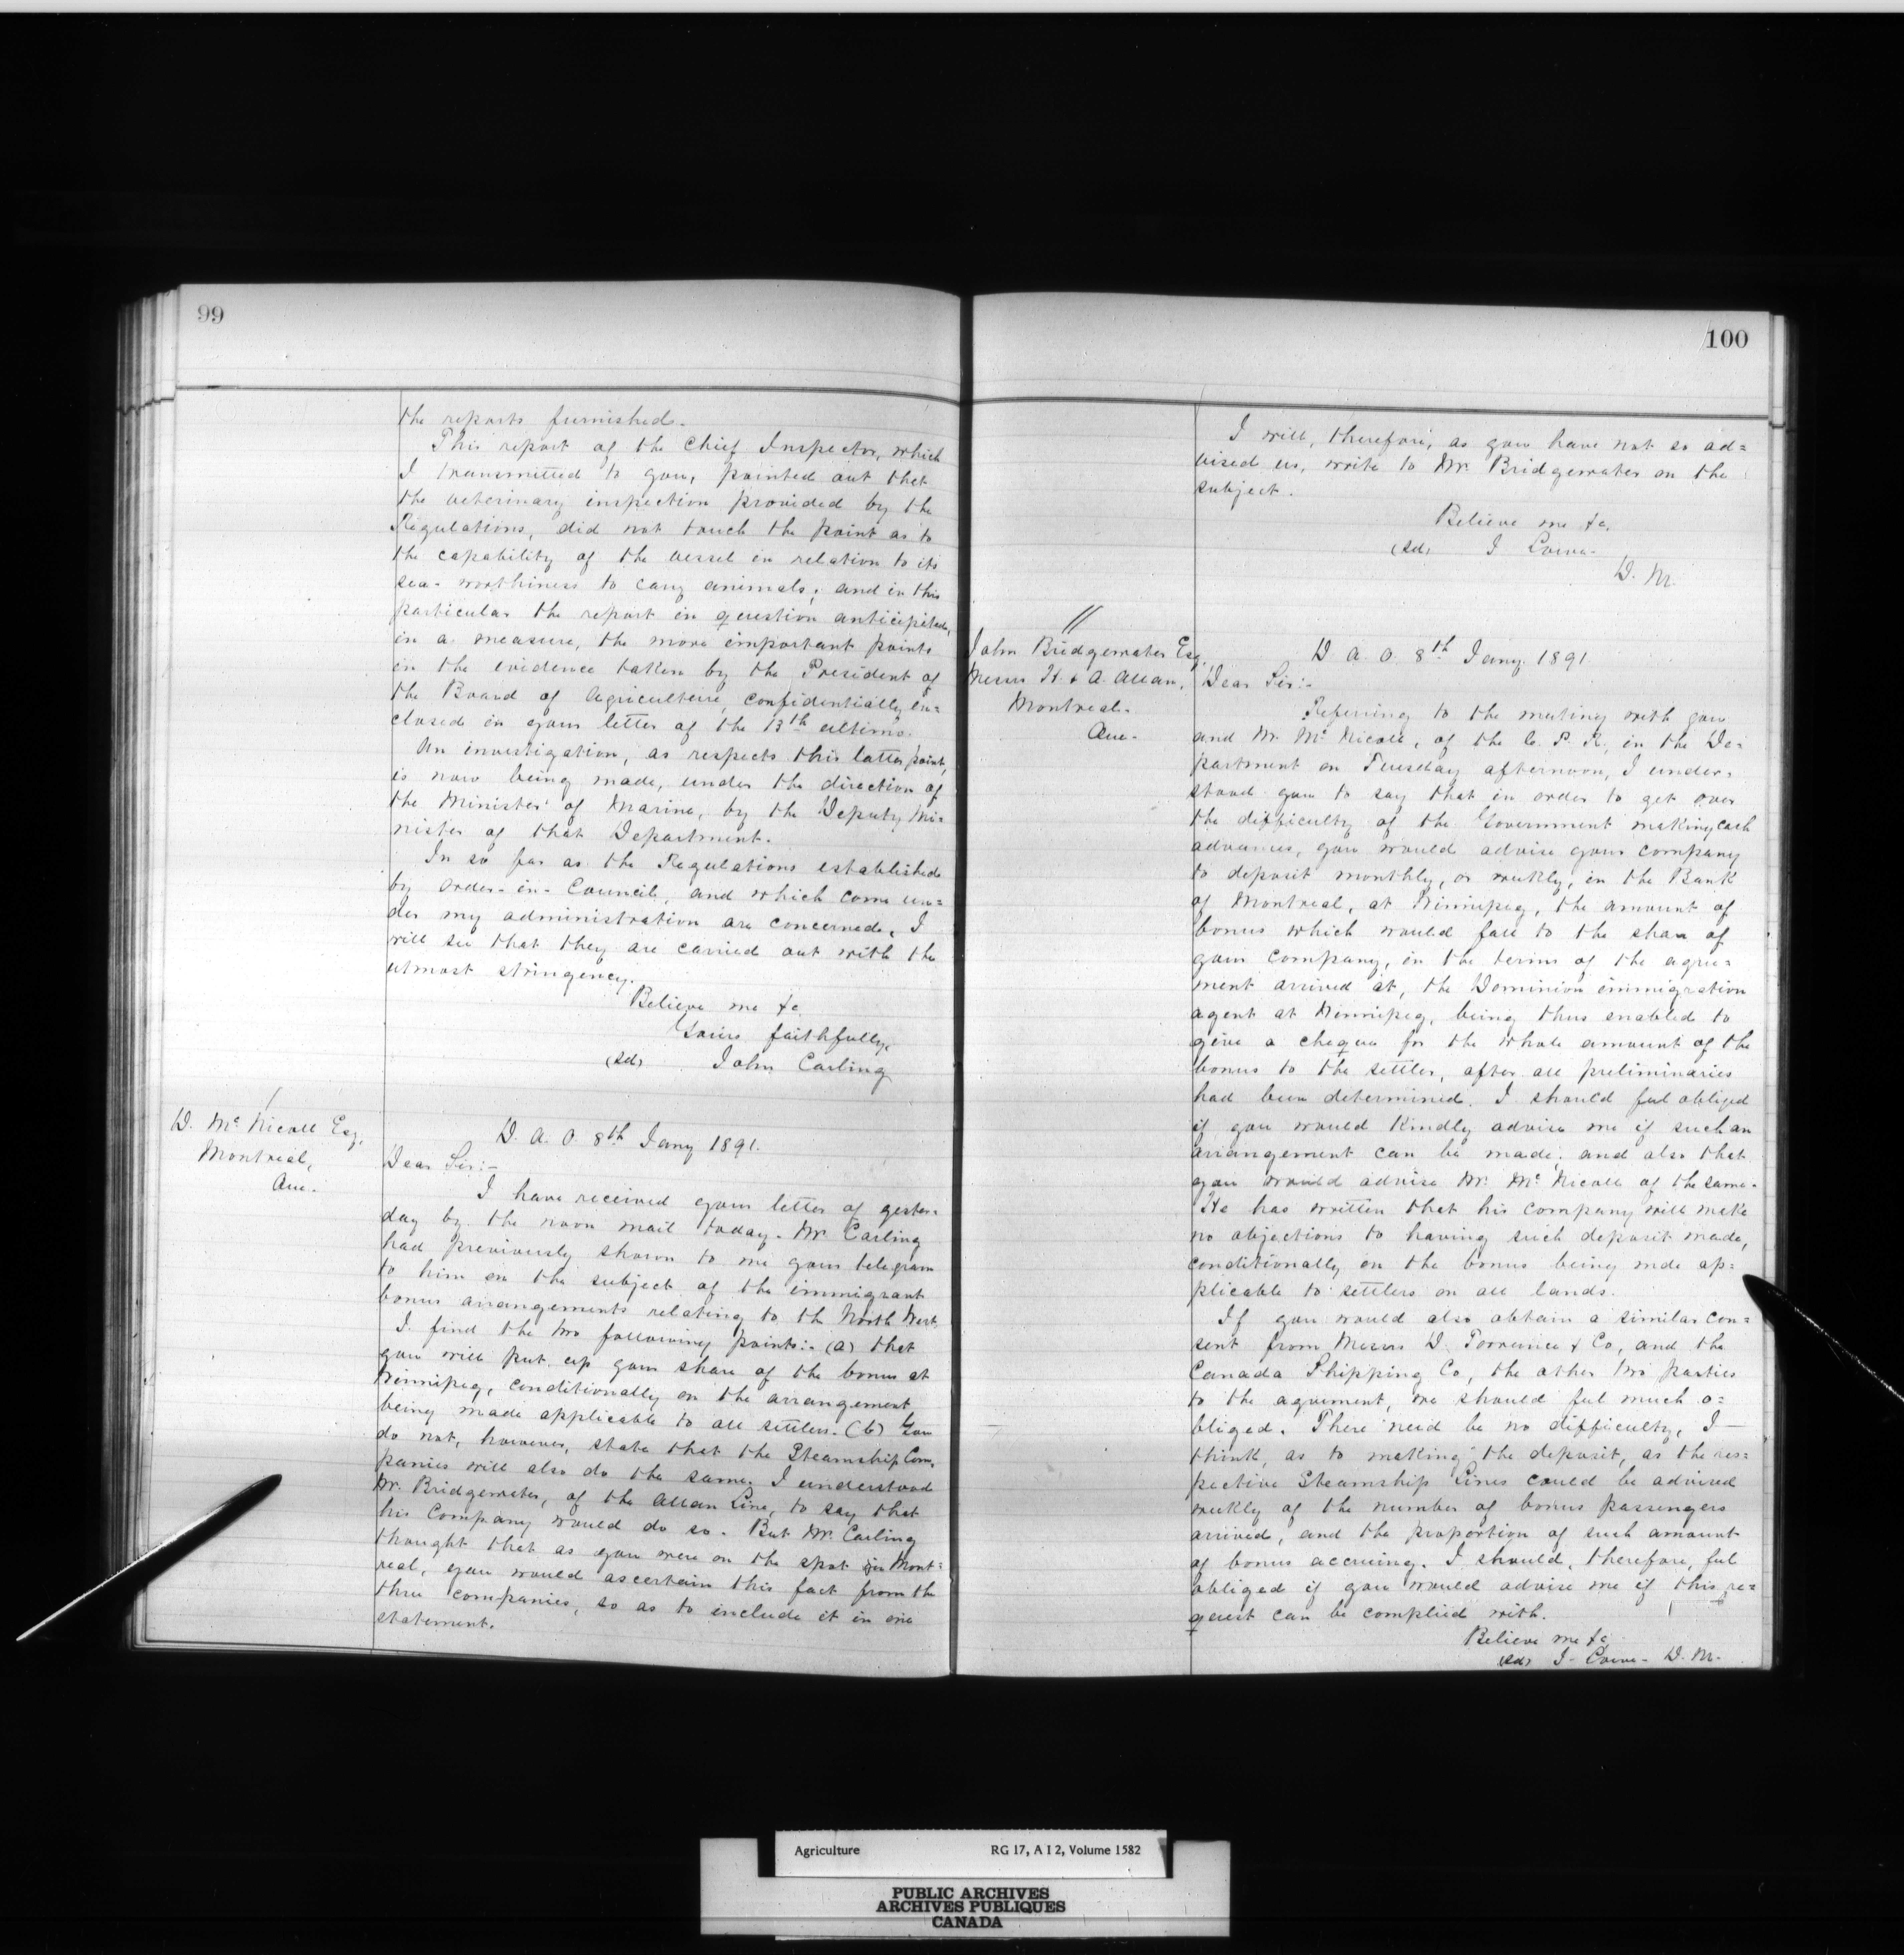 99
the reports furnished.
This report of the Chief Inspector, which
I transmitted to you, pointed out that
the veterinary inspection provided by the
Regulations, did not touch the point as to
the capability of the vessel in relation to its
sea-worthiness to cary animals; and in this
particular the report in question anticipated,
in a measure, the more important points
in the evidence taken by the President of
the Board of Agriculture, confidentially en=
closed in your letter of the 13th ultimo.
An investigation, as respects this latter point,
is now being made, under the direction of
the Minister of Marine, by the Deputy Mi=
nister of that Department.
In so far as the Regulations established
by Order-in-Council, and which come un=
der my administration are concerned, I
will see that they are carried out with the
utmost stringency.
Believe me &c.
Yours faithfully,
(sd) John Carling
D. McNicoll Esq,
Montreal,
Que.
D. A. O. 8th Jany 1891.
Dear Sir:-
I have received your letter of yester=
day by the noon mail today. Mr. Carling
had previously shown to me your telegram
to him on the subject of the immigrant
bonus arrangements relating to the North West.
I find the two following points:- (a) that
you will put up your share of the bonus at
Winnipeg, conditionally on the arrangement
being made applicable to all settlers. (b) You
do not, however, state that the Steamship Com.
panies will also do the same. I understood
Mr. Bridgewater, of the Allan Line, to say that
his Company would do so. But Mr. Carling
thought that as you were on the spot in Mont=
real, you would ascertain this fact from the
three companies, so as to include it in one
statement.
100
I will, therefore, as you have not so ad=
vised us, write to Mr. Bridgewater on the
subject.
Believe me &c,
(sd) J Lowe.
D. M.
//
John Bridgewater Esq,
Messrs H. & A. Allan,
Montreal.
Que.
D. A. O. 8th Jany. 1891
Dear Sir:-
Referring to the meeting with you
and Mr. McNicoll, of the C. P. R, in the De=
partment on Tuesday afternoon, I under=
stood you to say that in order to get over
the difficulty of the Government making cash
advances, you would advise your company
to deposit monthly, or weekly, in the Bank
of Montreal, at Winnipeg, the amount of
bonus which would fall to the share of
your Company, in the terms of the agree=
ment arrived at, the Dominion immigration
agent at Winnipeg, being thus enabled to
give a cheque for the whole amount of the
bonus to the settler, after all preliminaries
had been determined. I should feel obliged
if you would kindly advise me if such an
arrangement can be made; and also that
you would advise Mr. McNicoll of the same.
He has written that his company will make
no objections to having such deposit made,
conditionally on the bonus being mde ap=
plicable to settlers on all lands.
If you would also obtain a similar con=
sent from Messrs D. Torrance & Co, and the
Canada Shipping Co, the other two parties
to the agreement, we should feel much o=
bliged. There need be no difficulty, I
think, as to making the deposit, as the res=
pective Steamship Lines could be advised
weekly of the number of bonus passengers
arrived, and the proportion of such amount
of bonus accruing. I should, therefore, feel
obliged if you would advise me if this re=
quest can be complied with.
Believe me &c
(sd) J. Lowe. D. M.
Agriculture RG 17, A I 2, Volume 1582
PUBLIC ARCHIVES
ARCHIVES PUBLIQUES
CANADA